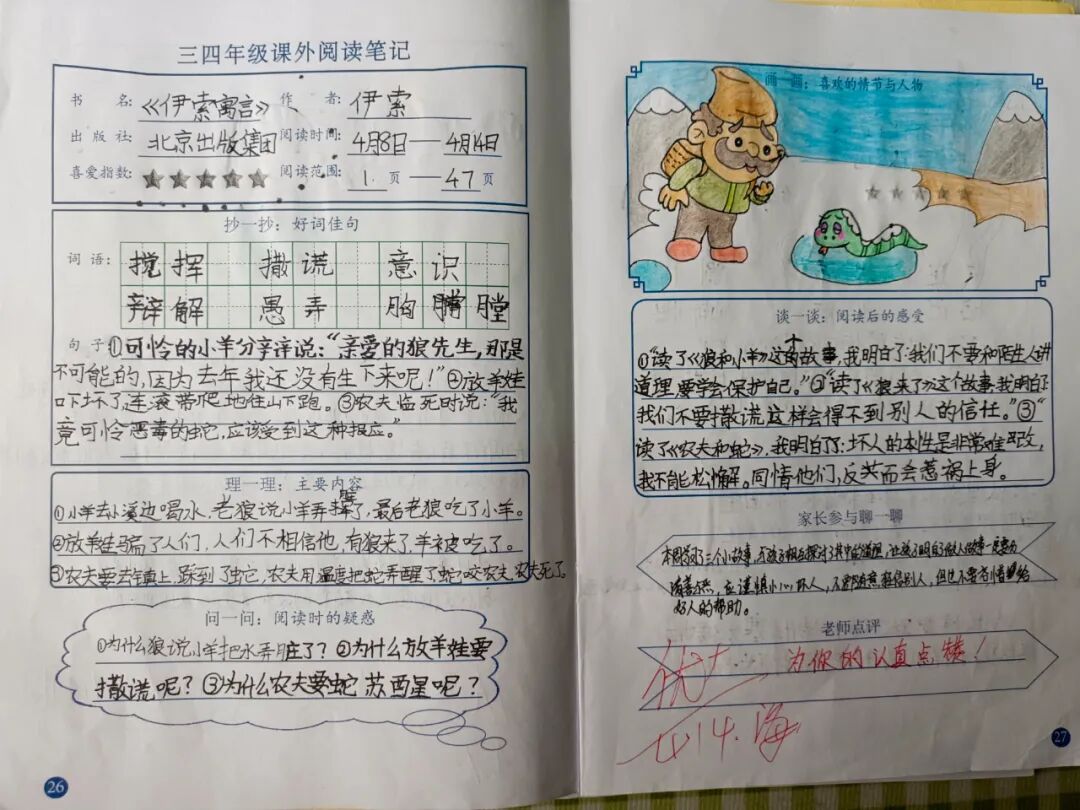 三四年级课外阅读笔记
书 名: 《伊索寓言》 作 者: 伊索
出版社: 北京出版集团 阅读时间: 4月8日——4月14日
喜爱指数: ★★★★★ 阅读范围: 1 页 — 47 页
抄一抄: 好词佳句
词语: 搅挥 撒谎 意识
辩解 愚弄 胸膛
句子 ①可怜的小羊分辛辛说:“亲爱的狼先生,那是
不可能的,因为去年我还没有生下来呢!”②放羊娃
吓坏了,连滚带爬地往山下跑。③农夫临死时说:“我
竟可怜恶毒的蛇,应该受到这种报应。”
理一理: 主要内容
①小羊去小溪边喝水,老狼说小羊弄脏了,最后老狼吃了小羊。
②放羊娃骗了人们,人们不相信他,有狼来了,羊被吃了。
③农夫要去镇上,踩到了蛇它,农夫用温度把蛇弄醒了蛇咬农夫,农夫死了
问一问: 阅读时的疑惑
①为什么狼说小羊把水弄脏了?②为什么放羊娃要
撒谎呢?③为什么农夫要蛇苏西星呢?
26
画一画: 喜欢的情节与人物
谈一谈: 阅读后的感受
①“读了《狼和小羊》这的故事,我明白了:我们不要和陌生人讲
道理,要学会保护自己。”②“读了《狼来了》这个故事,我明白了:
我们不要撒谎,这样会得不到别人的信任。”③“
读了《农夫和蛇》,我明白了:坏人的本性是非常难改,
我不能松懈。同情他们,反关而会惹祸上身。
家长参与聊一聊
本周读了三个小故事,与孩子相互探讨了其中的道理,让孩子明白了做人做事一定要分
清善恶,应谨慎小心坏人,不要随意轻信别人,但也不要吝惜给
好人的帮助。
老师点评
优 为你的认真点赞!
4.14.海
27